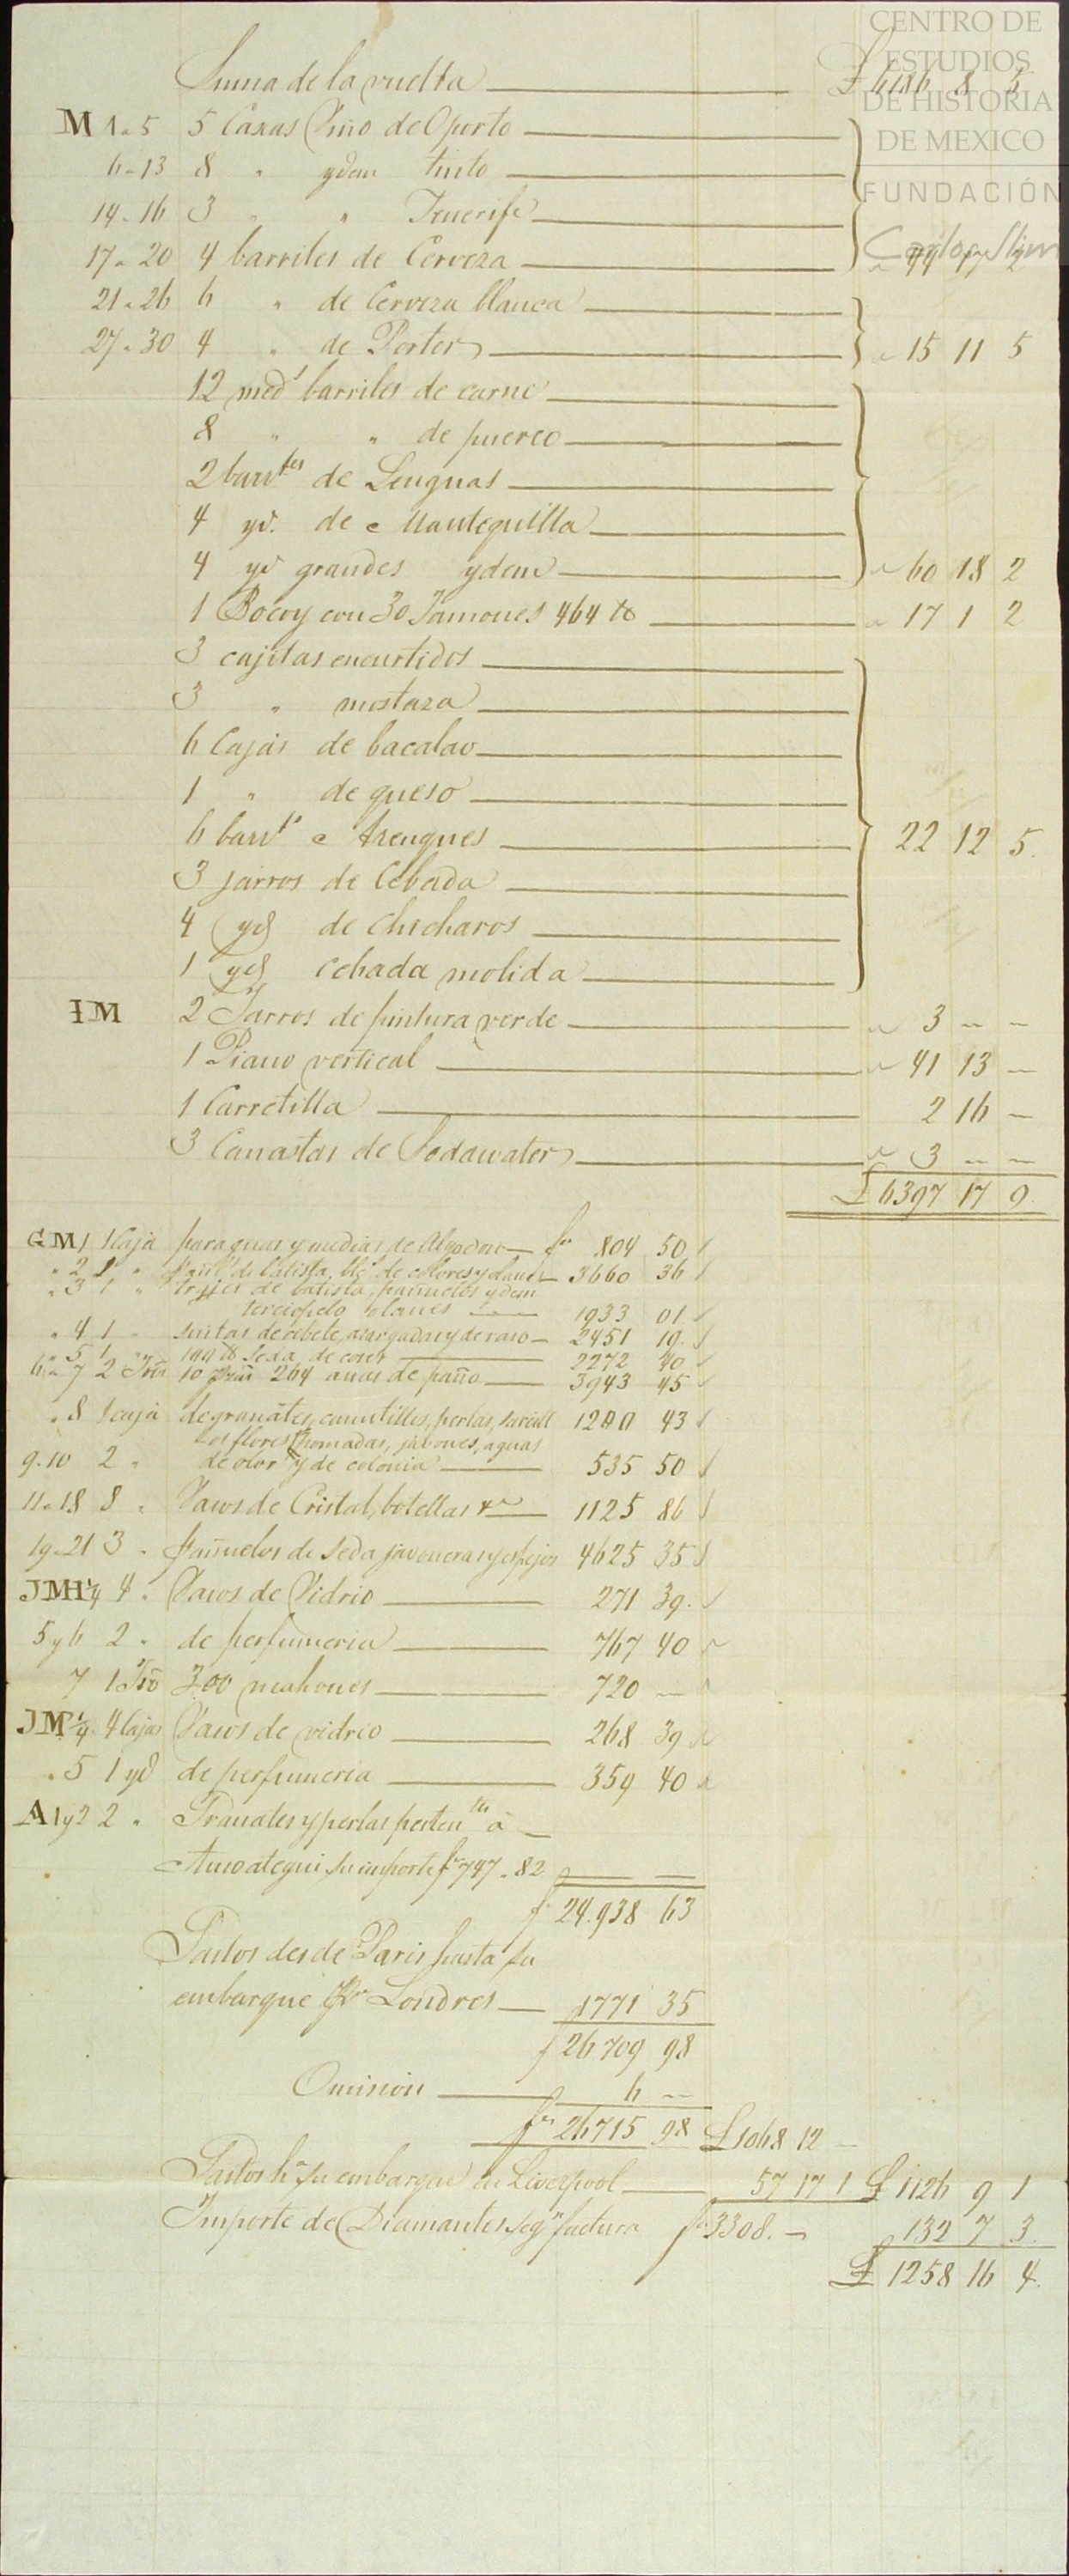 CENTRO DE
ESTUDIOS
DE HISTORIA
DE MEXICO
FUNDACIÓN
Carlos Slim
Suma de la vuelta £ 6186 8 5
M 1 a 5 5 Caxas Vino de Oporto
6 a 13 8 " ydem tinto
14 a 16 3 " " Tenerife
17 a 20 4 barriles de Cerveza
21 a 26 6 " de Cerveza blanca
27 a 30 4 " de Porter " 15 11 5
12 med.s barriles de carne
8 " " de puerco
2 barr.tes de Lenguas
4 yd. de Mantequilla
4 yd grandes ydem " 60 18 2
1 Bocoy con 30 Jamones 464 lb " 17 1 2
3 cajitas encurtidos
3 " mostaza
6 Cajas de bacalao
1 " de queso
6 barr.s Arenques 22 12 5.
3 jarros de Cebada
4 yd de Chicharos
1 yd Cebada molida
IM 2 Jarros de pintura verde " 3 - -
1 Piano vertical " 41 13 -
1 Carretilla 2 16 -
3 Canastas de Sodawater " 3 - -
£ 6397 17 9.
GM 1 1 Caja paraguas y medias de Algodon fs 804 50
" 2 1 " Pañ.s de batista, bl.s de colores y 3660 36
" 3 1 " trajes de batista, pañuelos ydem
terciopelo olanes 1933 01
" 4 1 " sintas de rebete, asargadas y de raso 2451 19.
" 5 1 " lb Seda de coser 2272 40
6 a 7 2 10 264 anas de paño 3943 45
" 8 1 caja de granates, canutillos, perlas, 43
los flores pomadas, jabones, aguas
9.10 2 " de olor y de colonia 535 50
11 a 18 8 " Vasos de Cristal, botellas &a 1125 86
19 a 21 3 " pañuelos de seda y espejos 4625 35
JM 1/4 4 " Vasos de Vidrio 271 39.
5 y 6 2 " de perfumeria 767 40
7 1 300 mahones 720 -
JM 1/4 4 Cajas Vasos de vidrio 268 39
" 5 1 yd de perfumeria 359 40
A 1 y 2 2 " Granates y perlas perten.tes á
Amoategui su importe fs 747.82
f 24.938 63
Gastos desde Paris hasta su
embarque Londres 1771 35
f 26.709 98
Omision 6 -
fs 26715 98 £ 1068 12 -
Gastos h.a su embarque en Liverpool 57 17 1 £ 1126 9 1
Importe de Diamantes seg.n factura fs 3308. - 132 7 3.
£ 1258 16 4.